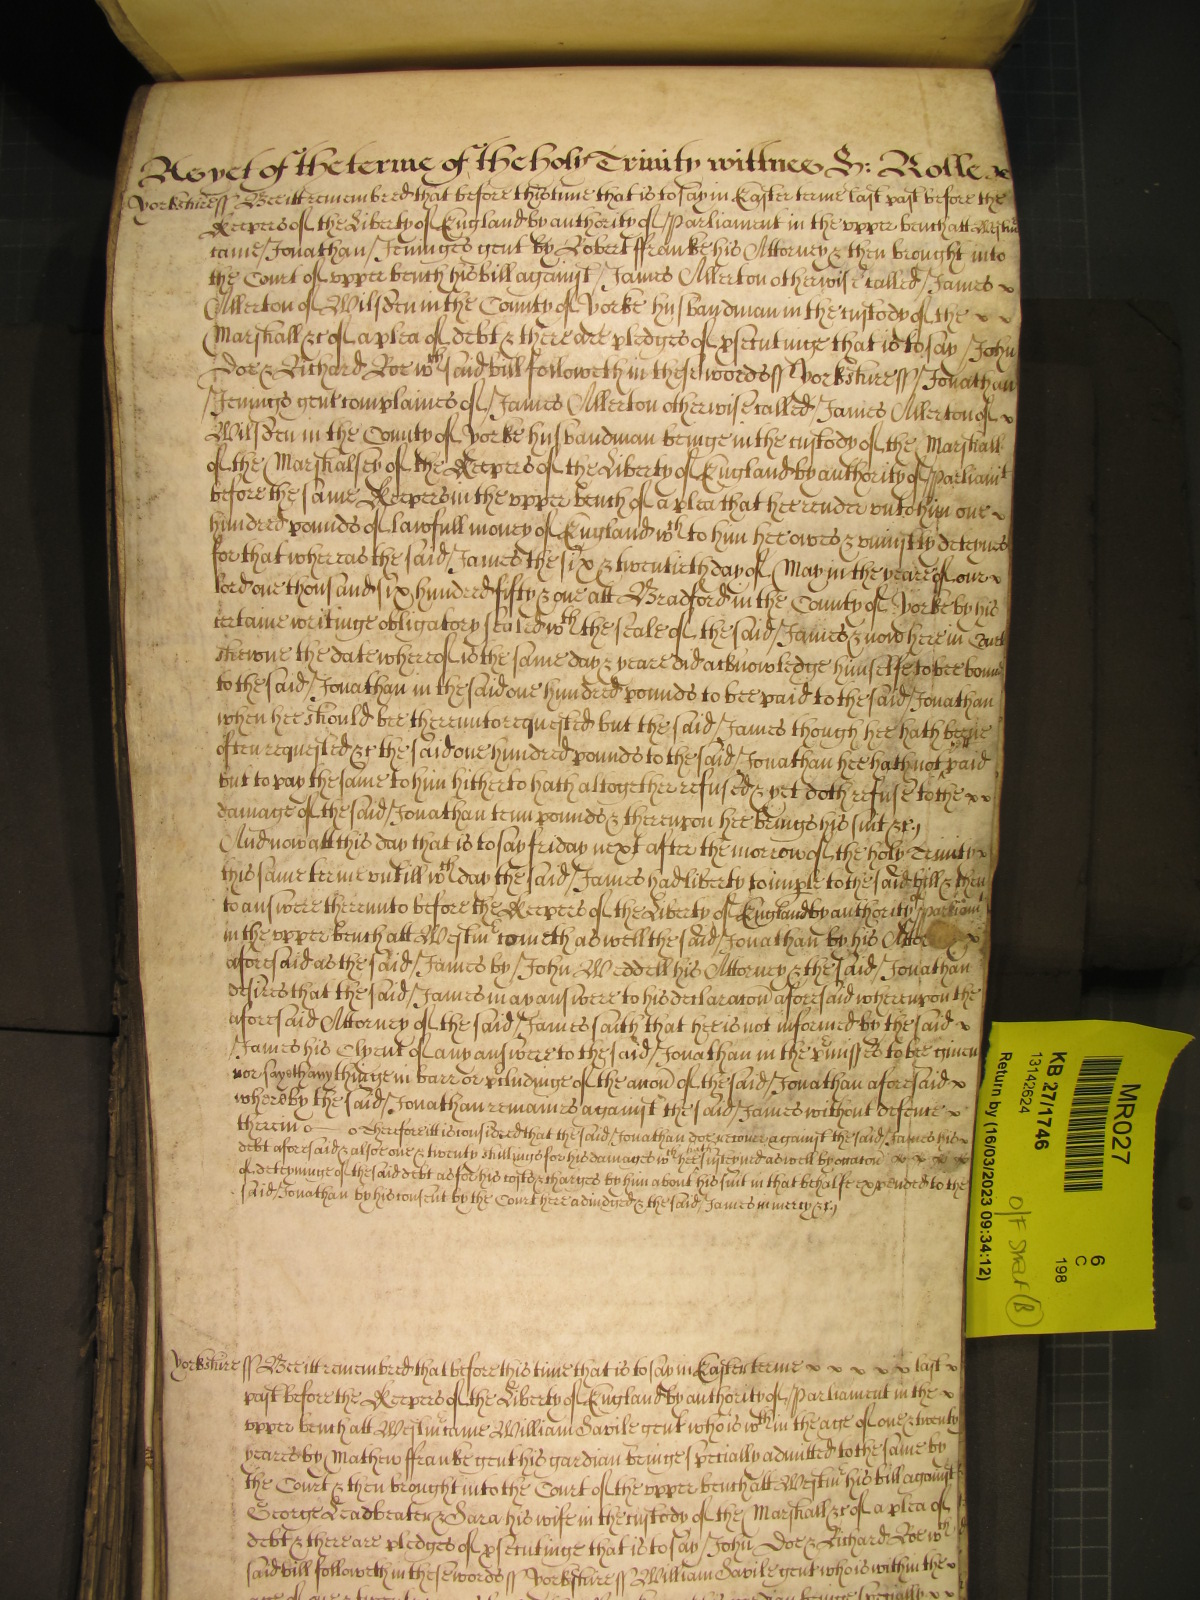 As yet of the terme of the holy Trinity wittnes H: Rolle
Yorkshire ss Bee itt remembred that before this time that is to say in Easter terme last past before the
Keepers of the Liberty of England by authority of Parliament in the upper bench att Westm
came Jonathan Jennings gent by Robert ffranke his Attorney & then brought into
the Court of upper bench his bill against James Allerton otherwise called James
Allerton of Wilsden in the County of Yorke husbandman in the custody of the
Marshall &c of a plea of debt & there are pledges of psecutinge that is to say John
Doe & Richard Roe wch said bill followeth in these words ss Yorkshire ss Jonathan
Jenings gent complaines of James Allerton otherwise called James Allerton of
Wilsden in the County of Yorke husbandman beinge in the custody of the Marshall
of the Marshalsey of the Keepers of the Liberty of England by authority of Parliamt
before the same Keepers in the upper bench of a plea that hee render unto him one
hundred pounds of lawfull money of England wch to him hee owes & uniustly deteynes
for that whereas the said James the six & twentieth day of May in the yeare of our
lord one thousand six hundred fifty & one att Bradford in the County of Yorke by his
certaine writinge obligatory sealed wth the seale of the said James & now here in Court
shewne the date whereof is the same day & yeare did acknowledge himselfe to bee bound
to the said Jonathan in the said one hundred pounds to bee paid to the said Jonathan
when hee should bee thereunto requested but the said James though hee hath beene
often requested &c the said one hundred pounds to the said Jonathan hee hath not paid
but to pay the same to him hitherto hath altogether refused & yet doth refuse to the
damage of the said Jonathan tenn pounds & thereupon hee brings his suit &c
And now att this day that is to say friday next after the morrow of the holy Trinity
this same terme untill wch day the said James had liberty to imple to the said bill & then
to answere thereunto before the Keepers of the Liberty of England by authority of Parliamt
in the upper bench att Westm cometh as well the said Jonathan by his
aforesaid as the said James by John Weddell his Attorney & the said Jonathan
desires that the said James may answere to his declaracon aforesaid whereupon the
aforesaid Attorney of the said James saith that hee is not informed by the said
James his Clyent of any answere to the said Jonathan in the pmisses to bee given
nor sayeth any thinge in barr or pcludinge of the accon of the said Jonathan aforesaid
whereby the said Jonathan remaines against the said James without defence
therein Therefore itt is considered that the said Jonathan doe recover against the said James his
debt aforesaid & alsoe one & twenty shillings for his damages wch hee hath susteyned as well by occacon
of deteyninge of the said debt as for his costs & charges by him about his suit in that behalfe expended to the
said Jonathan by his consent by the Court here adiudged & the said James in mercy &c
Yorkshire ss Bee itt remembred that before this time that is to say in Easter terme last
past before the Keepers of the Liberty of England by authority of Parliament in the
upper bench att Westm came William Savile gent who is wthin the age of one & twenty
yeares by Mathew ffranke gent his gardian beinge specially admitted to the same by
the Court & then brought into the Court of the upper bench att Westm his bill against
George Leadbeater & Sara his wife in the custody of the Marshall &c of a plea of
debt & there are pledges of psecutinge that is to say John Doe & Richard Roe wch
said bill followeth in these words ss Yorkshire ss William Savile gent who is within the
MR027
6
C
198
KB 27/1746
13142624
Return by (16/03/2023 09:34:12)
O/F Shelf (B)